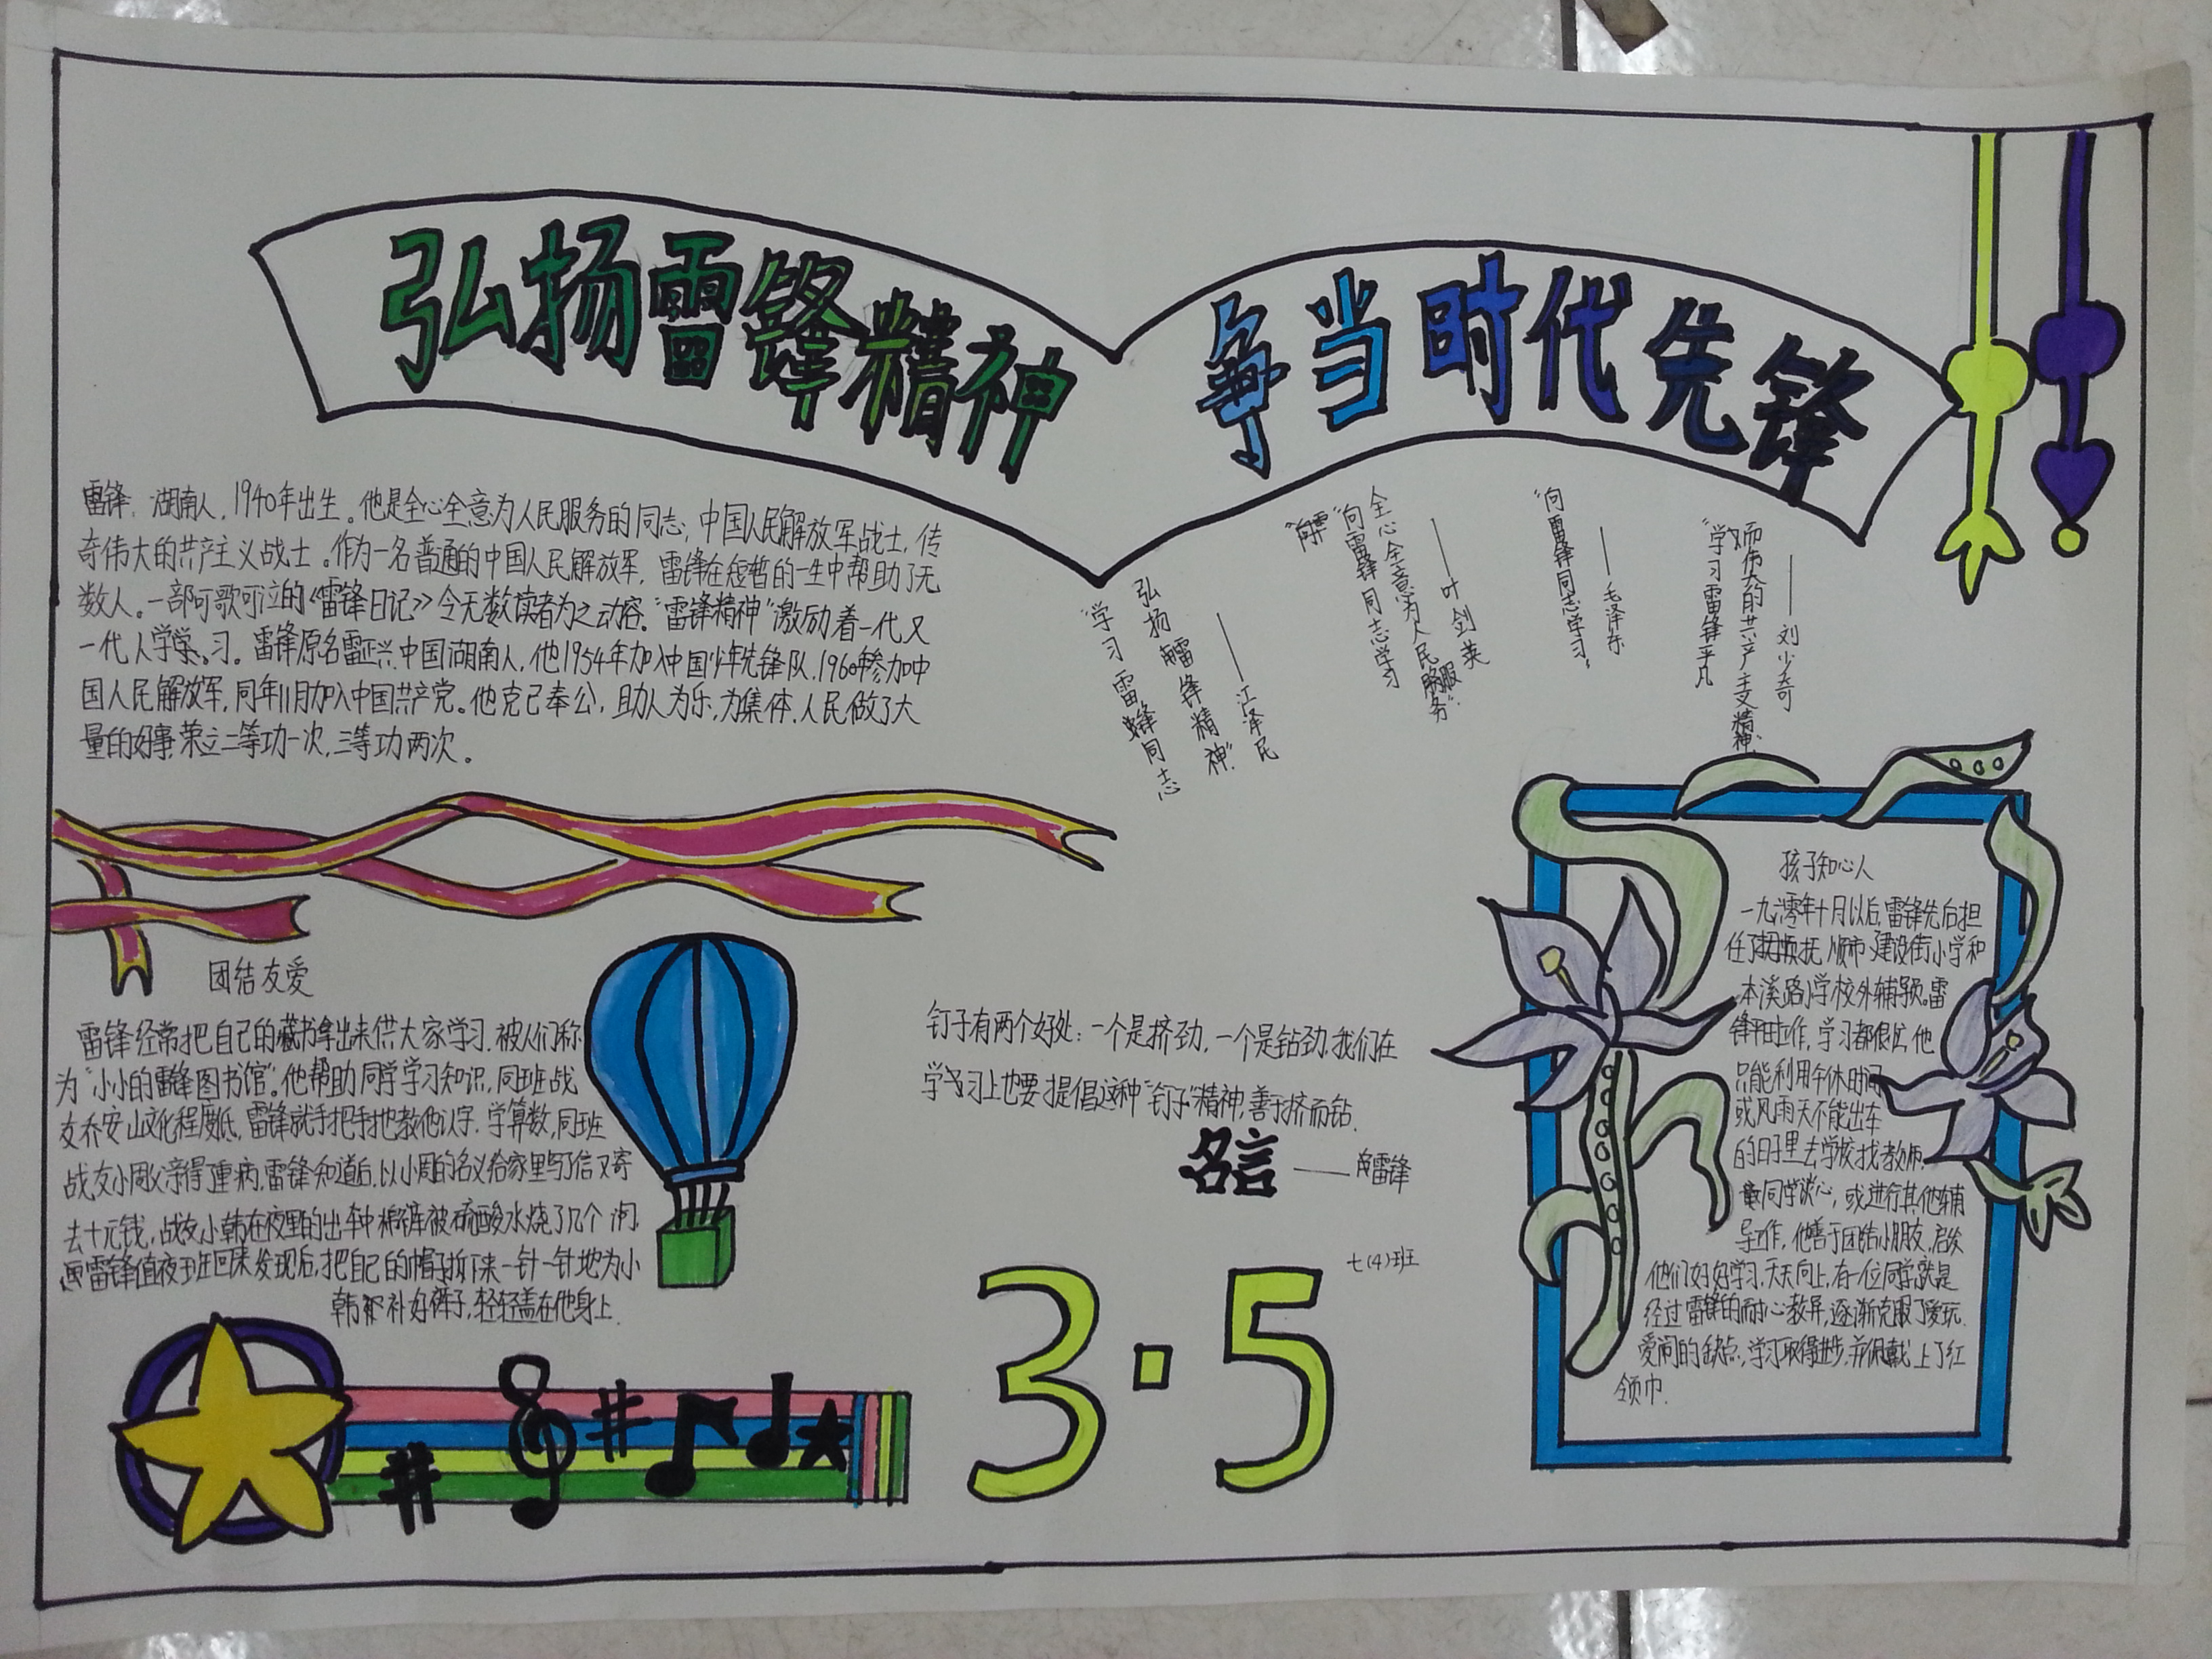 弘扬雷锋精神
争当时代先锋
雷锋，湖南人，1940年出生。他是全心全意为人民服务的同志，中国人民解放军战士，传
奇伟大的共产主义战士。作为一名普通的中国人民解放军，雷锋在短暂的一生中帮助了无
数人。一部可歌可泣的《雷锋日记》令无数读者为之动容。“雷锋精神”激励着一代又
一代人学习。雷锋原名雷正兴，中国湖南人，他1954年加入中国少年先锋队，1960年参加中
国人民解放军，同年11月加入中国共产党。他克己奉公，助人为乐，为集体，人民做了大
量的好事，荣立二等功一次，三等功两次。
“学习雷锋同志
弘扬雷锋精神”
——江泽民
“向雷锋同志学习
全心全意为人民服务”
——叶剑英
“向雷锋同志学习”
——毛泽东
“学习雷锋平凡
而伟大的共产主义精神”
——刘少奇
团结友爱
雷锋经常把自己的藏书拿出来供大家学习，被人们称
为“小小的雷锋图书馆”。他帮助同学学习知识，同班战
友乔安山文化程度低，雷锋就手把手地教他认字，学算数，同班
战友小周父亲得了重病，雷锋知道后，以小周的名义给家里写了信又寄
去十元钱，战友小韩在夜里的出车中棉裤被硫酸水烧了几个洞，
雷锋值夜班回来发现后，把自己的帽子拆下来一针一针地为小
韩补好裤子，轻轻盖在他身上。
钉子有两个好处：一个是挤劲，一个是钻劲，我们在
学习上也要提倡这种“钉子”精神，善于挤而钻。
名言——雷锋
七(4)班
3·5
孩子知心人
一九六零年十月以后，雷锋先后担
任了抚顺市建设街小学和
本溪路小学校外辅导员。雷
锋平日工作，学习都很忙，他
只能利用午休时间
或风雨天不能出车
的日子里去学校找教师，
同学谈心，或进行其他辅
导工作，他善于团结小朋友，启发
他们好好学习，天天向上，有一位同学就是
经过雷锋的耐心教导，逐渐克服了爱玩，
爱闹的缺点，学习取得进步，并佩戴上了红
领巾.